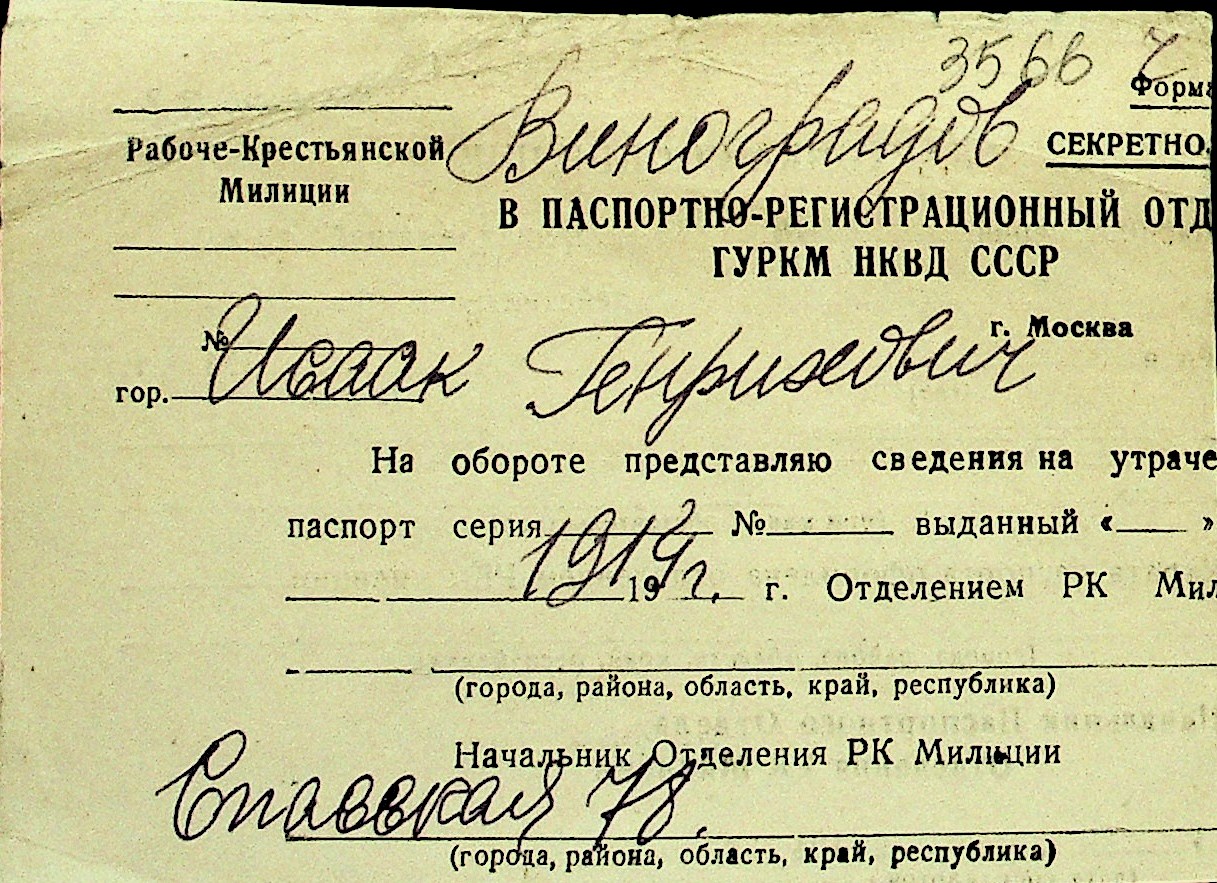 3566 Ч
Форма
Виноградов
СЕКРЕТНО.
Рабоче-Крестьянской
Милиции
В ПАСПОРТНО-РЕГИСТРАЦИОННЫЙ ОТД
ГУРКМ НКВД СССР
г. Москва
№
гор. Исаак Генрихович
На обороте представляю сведения на утраче
паспорт серия № выданный « »
1914 г. 19 г. Отделением РК Мил
(города, района, область, край, республика)
Начальник Отделения РК Милиции
Спасская 78.
(города, района, область, край, республика)